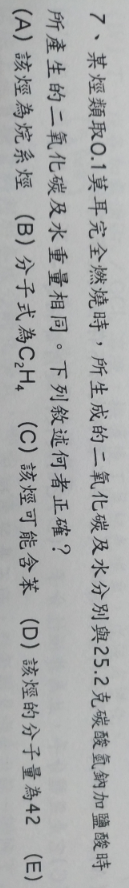 7、某烴類取0.1莫耳完全燃燒時，所生成的二氧化碳及水分別與25.2克碳酸氫鈉加鹽酸時
所產生的二氧化碳及水重量相同。下列敘述何者正確？
(A) 該烴為烷系烴 (B) 分子式為C₂H₄ (C) 該烴可能含苯 (D) 該烴的分子量為42 (E)